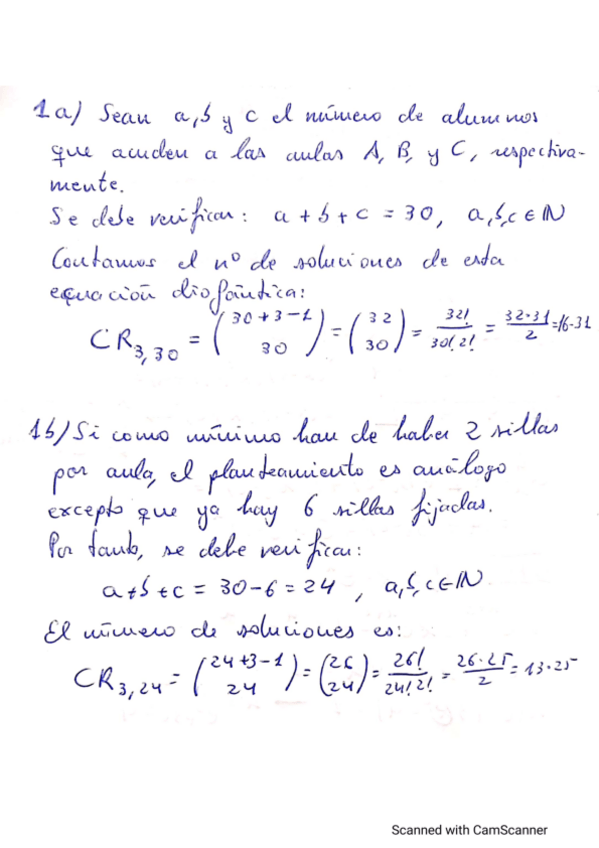 1a) Sean a, b y c el número de alumnos
que acuden a las aulas A, B, y C, respectiva-
mente.
Se debe verificar: a + b + c = 30, a,b,c ∈ ℕ
Contamos el nº de soluciones de esta
equación diofántica:
CR₃,₃₀ = (30+3-1 / 30) = (32 / 30) = 32!/30!2! = 32·31/2 = 16·31
1b) Si como mínimo han de haber 2 sillas
por aula, el planteamiento es análogo
excepto que ya hay 6 sillas fijadas.
Por tanto, se debe verificar:
a+b+c = 30-6 = 24, a,b,c ∈ ℕ
El número de soluciones es:
CR₃,₂₄ = (24+3-1 / 24) = (26 / 24) = 26!/24!2! = 26·25/2 = 13·25
Scanned with CamScanner